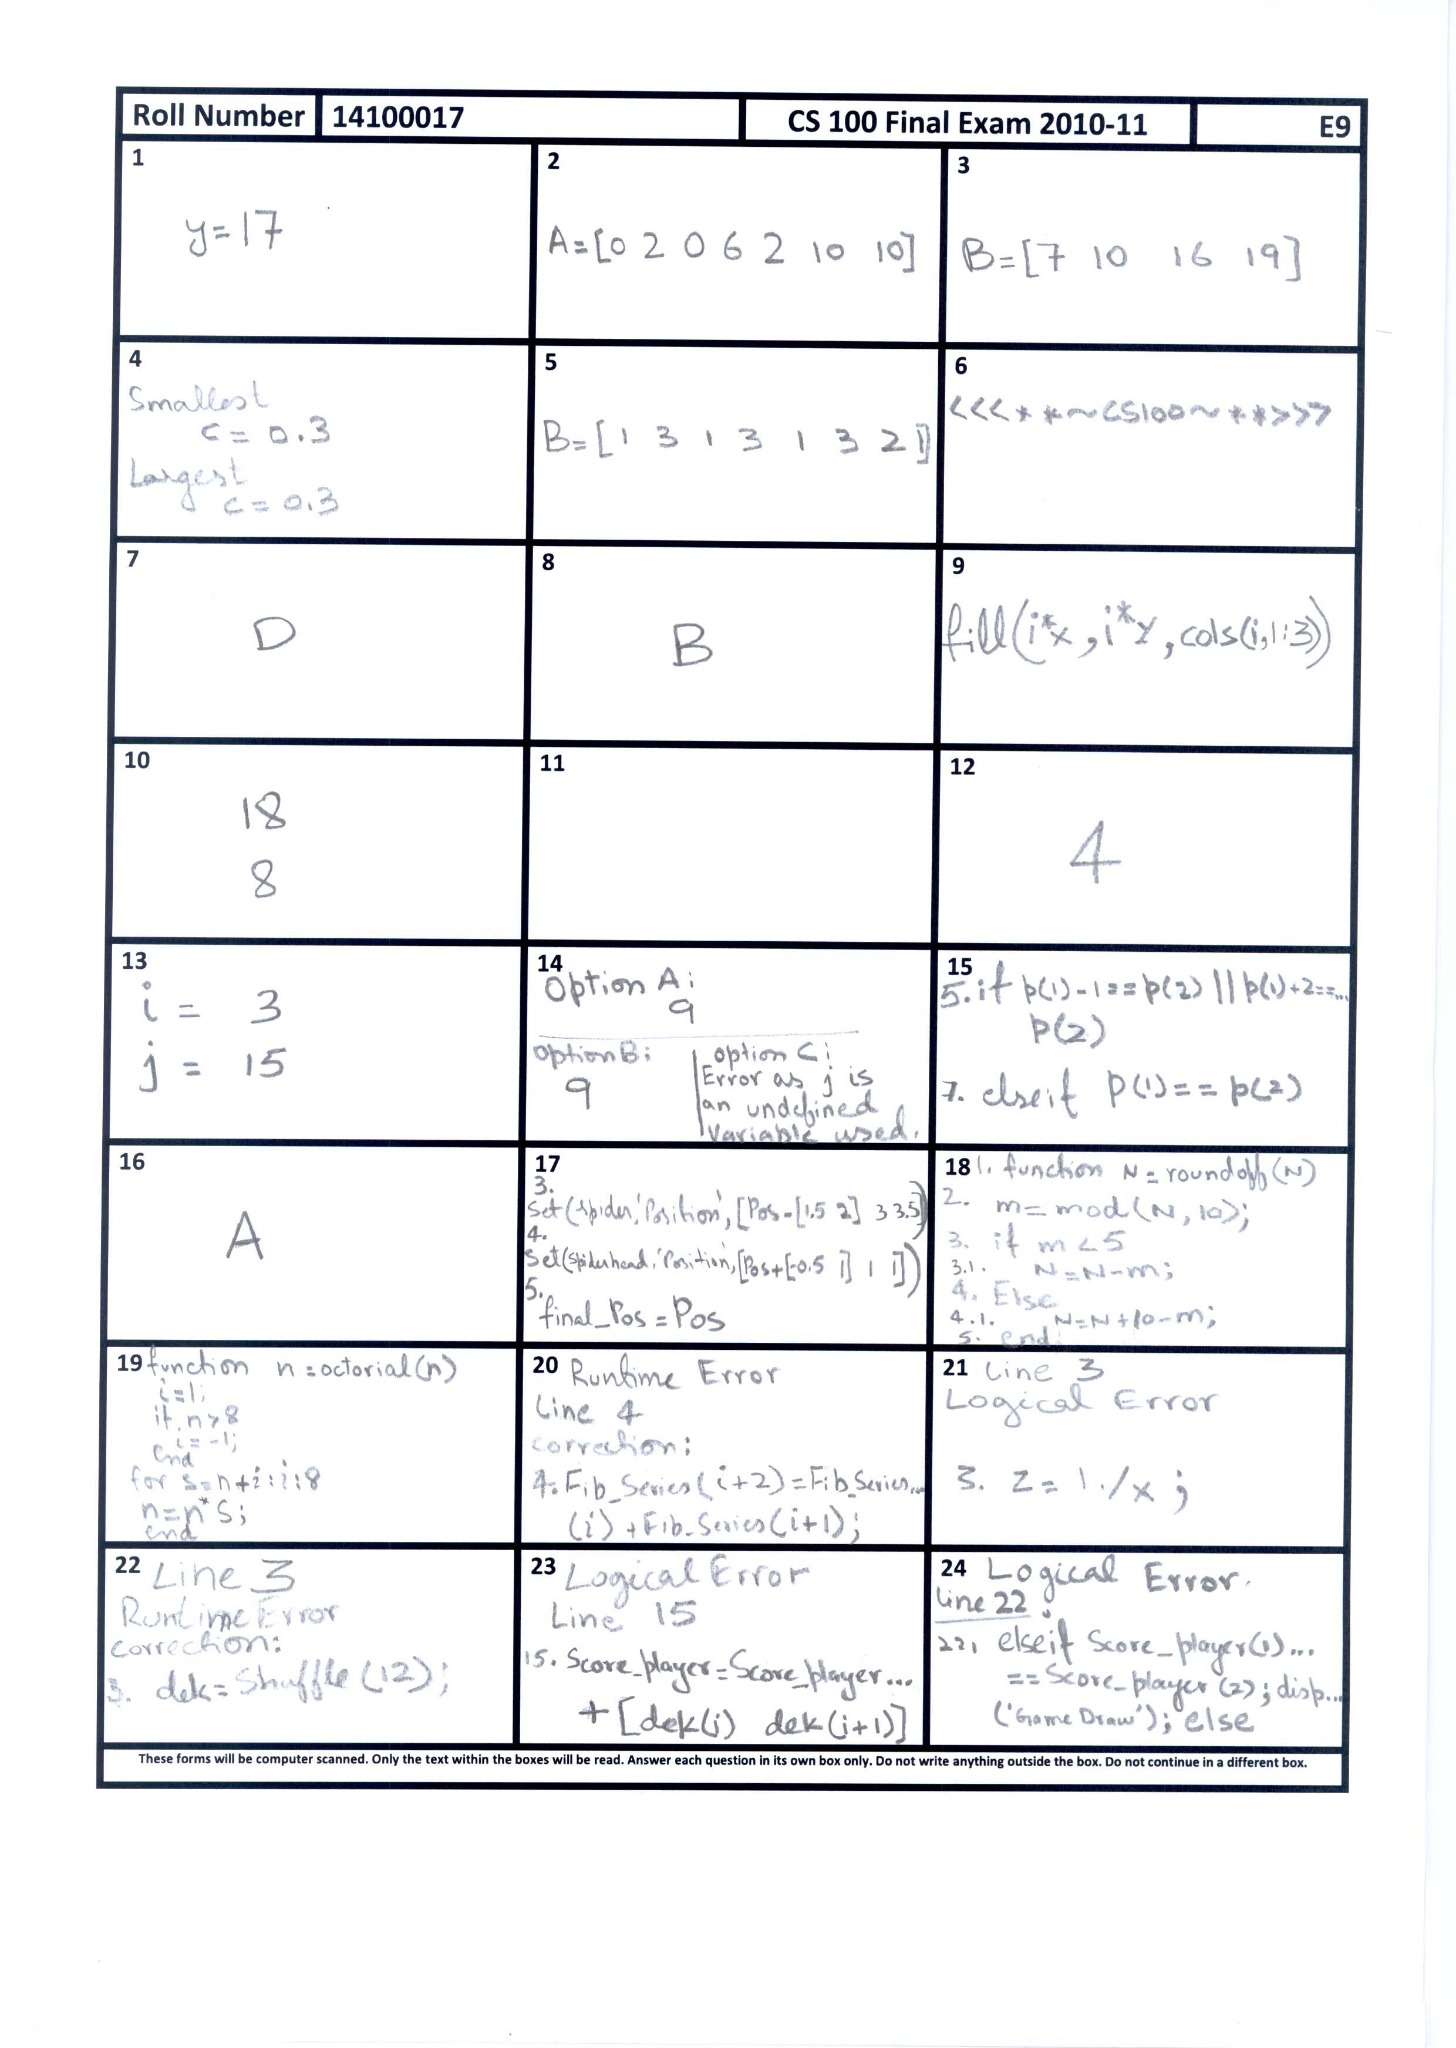 Roll Number 14100017 CS 100 Final Exam 2010-11 E9
1
y=17
2
A=[0 2 0 6 2 10 10]
3
B=[7 10 16 19]
4
Smallest
c = 0.3
Largest
c = 0.3
5
B=[1 3 1 3 1 3 2 1]
6
<<<**~CS100~**>>>
7
D
8
B
9
fill(i*x,i*y,cols(i,1:3))
10
18
8
11
12
4
13
i = 3
j = 15
14
Option A:
9
Option B:
9
Option C:
Error as j is
an undefined
variable used.
15
5. if p(1)-1==p(2)||p(1)+2==...
p(2)
7. elseif p(1)==p(2)
16
A
17
3.
set(spider,'Position',[Pos-[1.5 2] 3 3.5])
4.
set(spiderhead,'Position',[Pos+[-0.5 1] 1 1])
5.
final_Pos = Pos
18
1. function N=roundoff(N)
2. m=mod(N,10);
3. if m<5
3.1. N=N-m;
4. Else
4.1. N=N+10-m;
5. end
19
function n=octorial(n)
i=1;
if n>8
i=-1;
end
for s=n+i:i:8
n=n*s;
end
20
Runtime Error
Line 4
correction:
4. Fib_Series(i+2)=Fib_Series...
(i)+Fib_Series(i+1);
21
Line 3
Logical Error
3. z=1./x;
22
Line 3
Runtime Error
correction:
3. dek=Shuffle(12);
23
Logical Error
Line 15
15. Score_player=Score_player...
+[dek(i) dek(i+1)]
24
Logical Error.
Line 22
22. elseif Score_player(1)...
==Score_player(2);disp...
('Game Draw'); else
These forms will be computer scanned. Only the text within the boxes will be read. Answer each question in its own box only. Do not write anything outside the box. Do not continue in a different box.